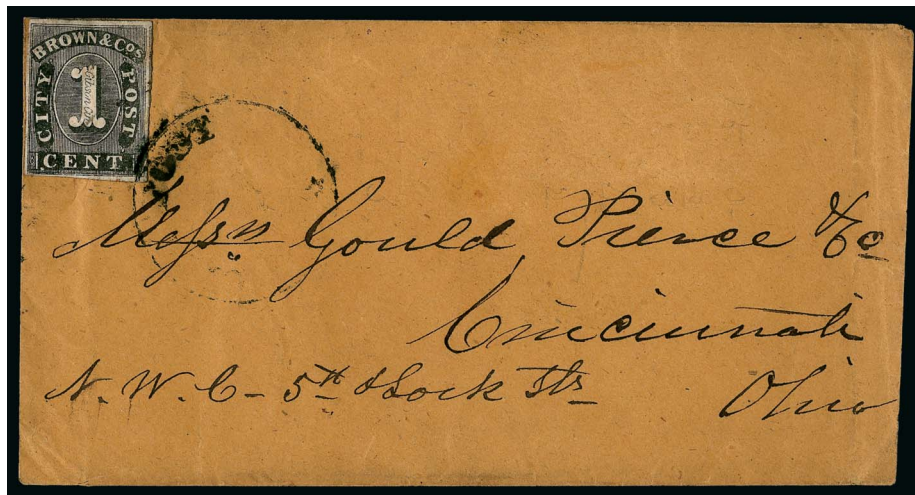 BROWN & Co's
CITY POST
1
CENT
POST
Messrs Gould Pierce & Co
Cincinnati
N. W. C - 5th & Lock Strs
Ohio